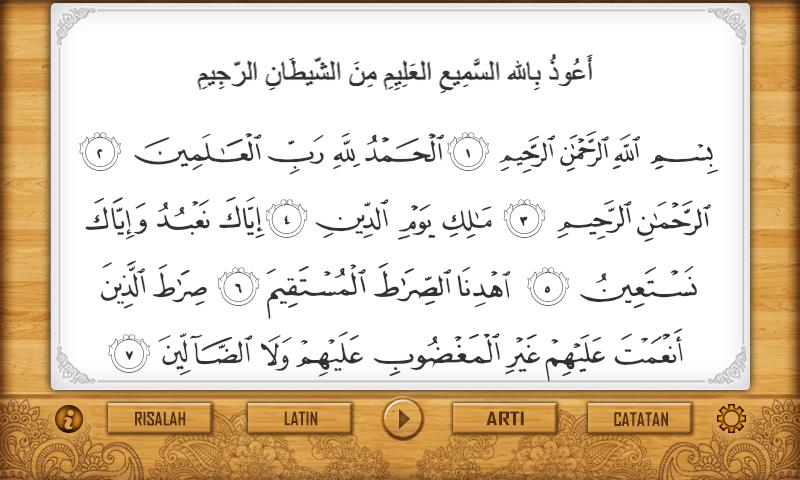 أَعُوذُ بِاللهِ السَّمِيعِ العَلِيمِ مِنَ الشَّيطَانِ الرَّجِيمِ
بِسْمِ ٱللَّهِ ٱلرَّحْمَٰنِ ٱلرَّحِيمِ ١ ٱلْحَمْدُ لِلَّهِ رَبِّ ٱلْعَٰلَمِينَ ٢
ٱلرَّحْمَٰنِ ٱلرَّحِيمِ ٣ مَٰلِكِ يَوْمِ ٱلدِّينِ ٤ إِيَّاكَ نَعْبُدُ وَإِيَّاكَ
نَسْتَعِينُ ٥ ٱهْدِنَا ٱلصِّرَٰطَ ٱلْمُسْتَقِيمَ ٦ صِرَٰطَ ٱلَّذِينَ
أَنْعَمْتَ عَلَيْهِمْ غَيْرِ ٱلْمَغْضُوبِ عَلَيْهِمْ وَلَا ٱلضَّآلِّينَ ٧
RISALAH LATIN ARTI CATATAN